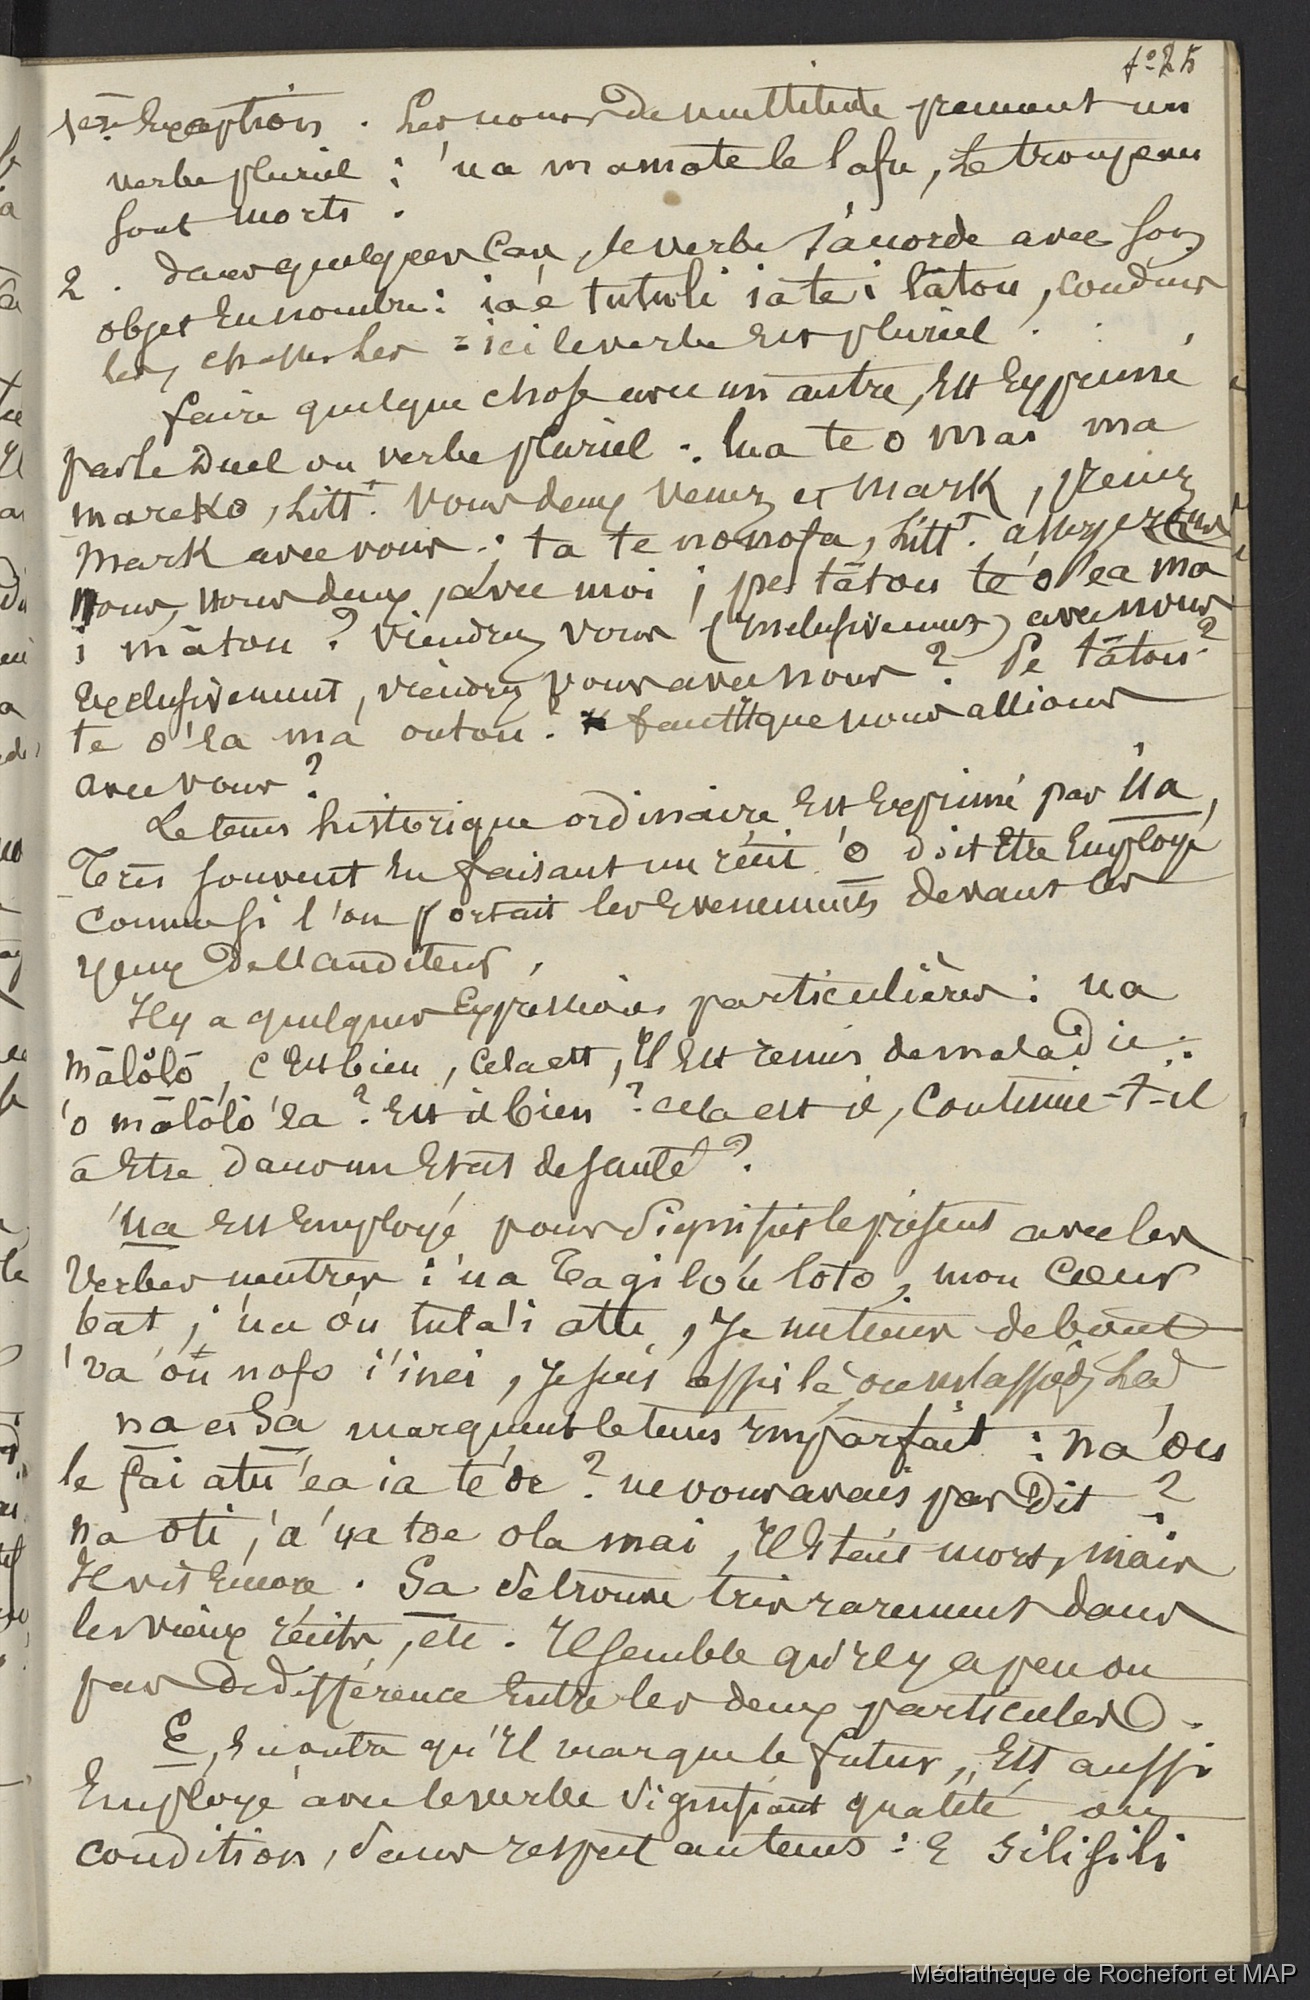 f° 25
1ère Exception. Les noms de multitude prennent un
verbe pluriel : 'ua mamate le lafu, le troupeau
sont morts.
2. dans quelques cas, le verbe s'accorde avec son
objet en nombre : ia é tutuli iate i lātou,
les, chasser les = ici le verbe est pluriel.
faire quelque chose avec un autre, est exprimé
par le Duel ou verbe pluriel : lua te o mai ma
mareko, Litt.t vous deux venez et Mark, venez
Mark avec vous ; ta te nonofo, Litt.t
nous, nous deux, avec moi ; pe tātou te ō 'ea ma
i mātou ? viendrez vous (inclusivement) avec nous
exclusivement, viendrez vous avec nous ? Pe tātou ?
te o 'ea ma outou. faut il que nous allions
avec vous ?
Le tems historique ordinaire est exprimé par 'Ua,
Très souvent en faisant un récit 'o doit être employé
comme si l'on portait les évenements devant les
yeux de l'auditeur,
Il y a quelques expressions particulières : ua
mālōlō, c'est bien, cela est, il est remis de maladie :
'o mālōlō 'ea ? Est il bien ? cela est il, continue-t-il
à être dans un état de santé ?
'Ua est employé pour signifier le présent avec les
verbes neutres : 'ua tagi lo'u loto, mon cœur
bat ; 'ua ou tula'i atu, Je me tiens debout
'ua 'ou nofo i'inei, je suis assis là
na et Sa marquent le tems imparfait : na 'ou
le fai atu 'ea ia te 'oe ? ne vous avais pas dit ?
na oti, 'a 'ua toe ola mai, Il était mort, mais
Il vit encore. Sa se trouve très rarement dans
les vieux récits, etc. Il semble qu'il y a peu ou
pas de différence entre les deux particules.
E, en outre qu'il marque le futur, est aussi
employé avec le verbe signifiant qualité ou
condition, sans respect au tems : E silisili